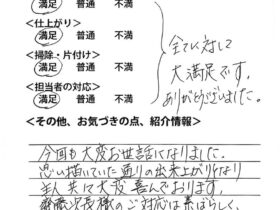 満足 普通 不満
<仕上がり>
満足 普通 不満
<掃除・片付け>
満足 普通 不満
<担当者の対応>
満足 普通 不満
全てに対して
大満足です。
ありがとうございました。
<その他、お気づきの点、紹介情報>
今回も大変お世話になりました。
思い描いていた通りの出来上がりになり
主人共々大変喜んでおります。
次長様のご対応は素ばらしく、